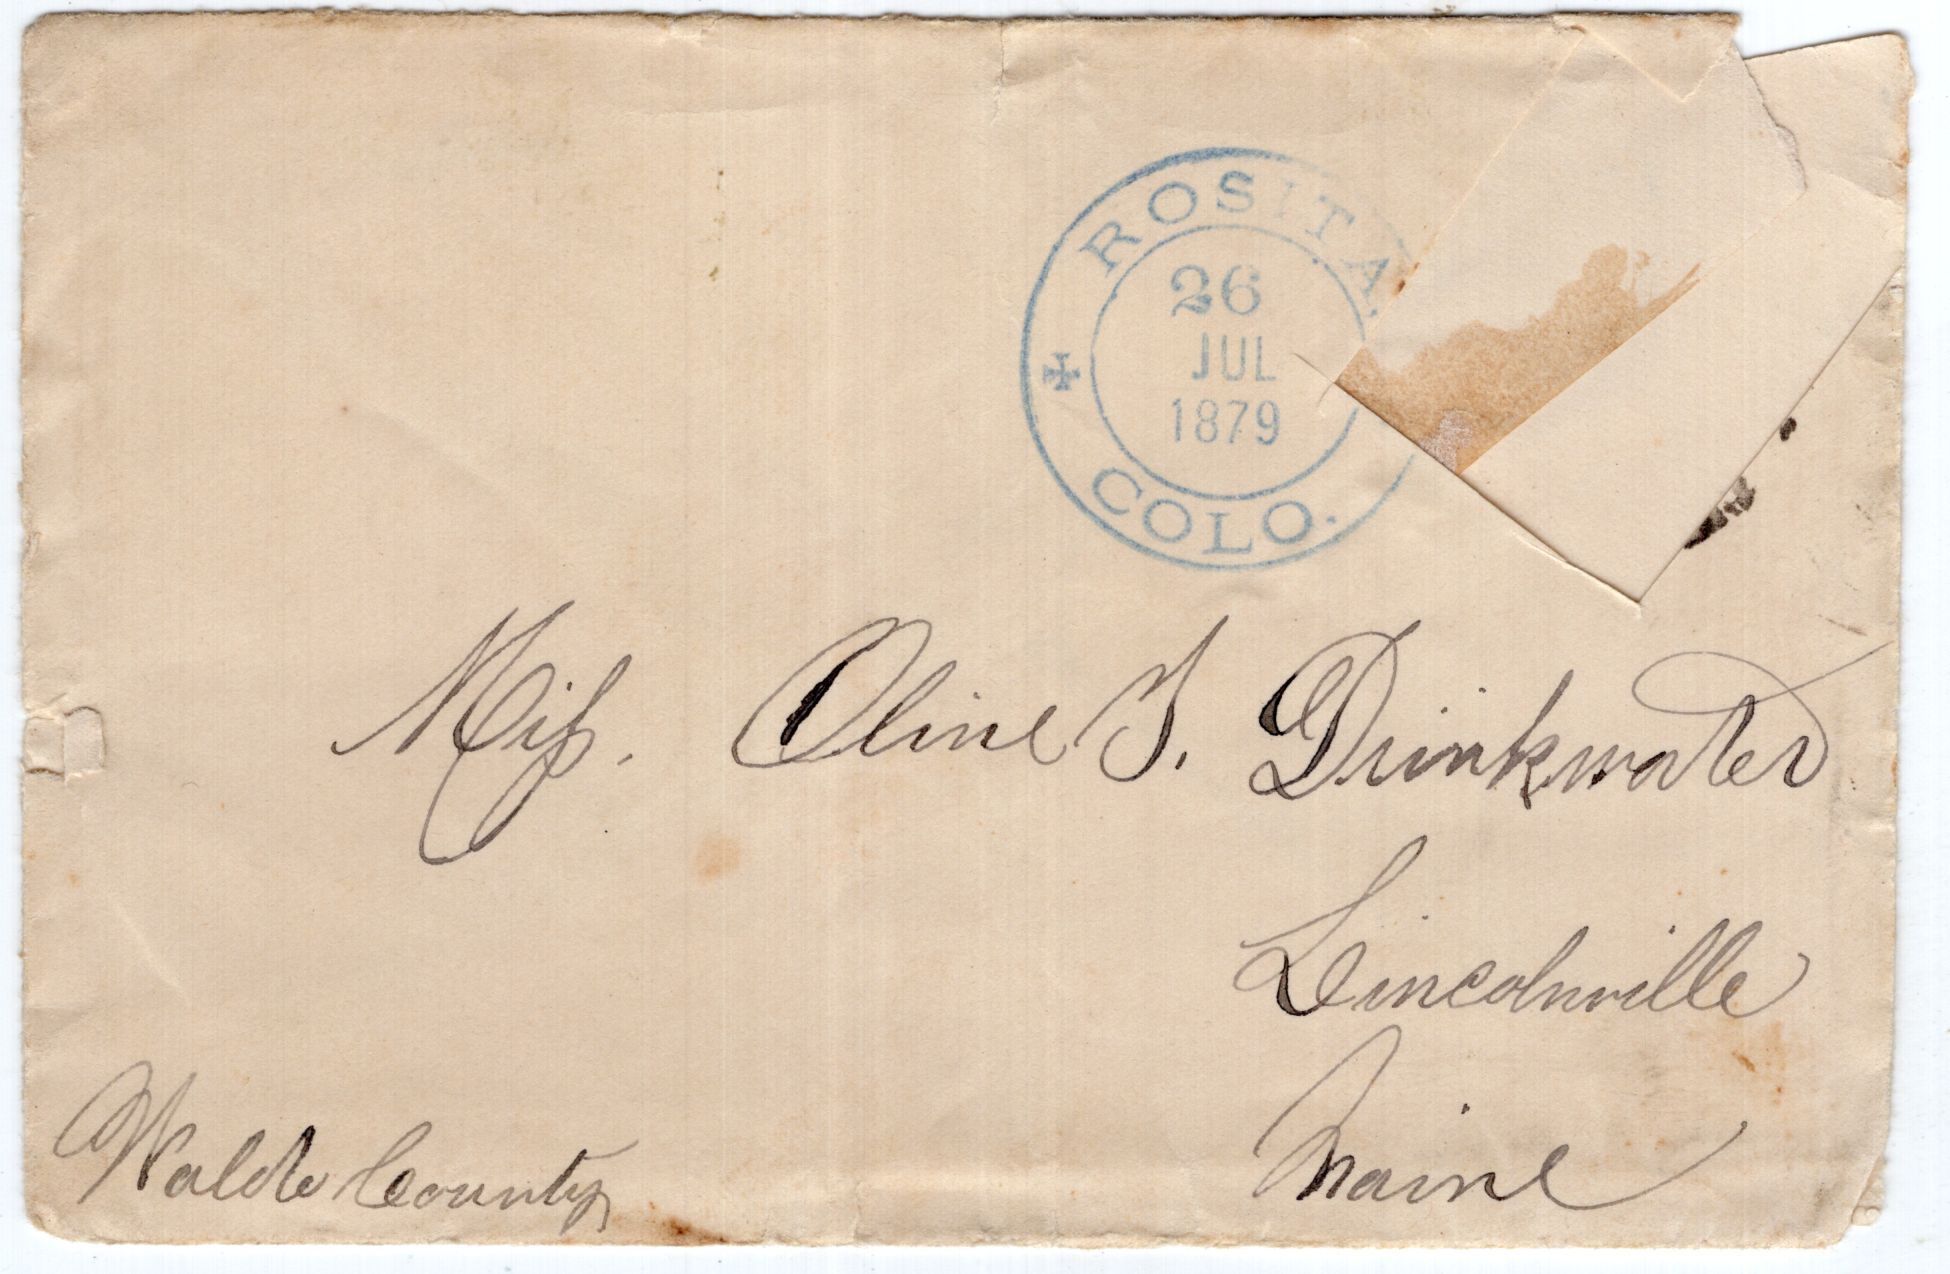 ROSITA.
26
JUL
1879
COLO.
Miſs. Oline T. Drinkwater
Lincolnville
Maine
Waldo County